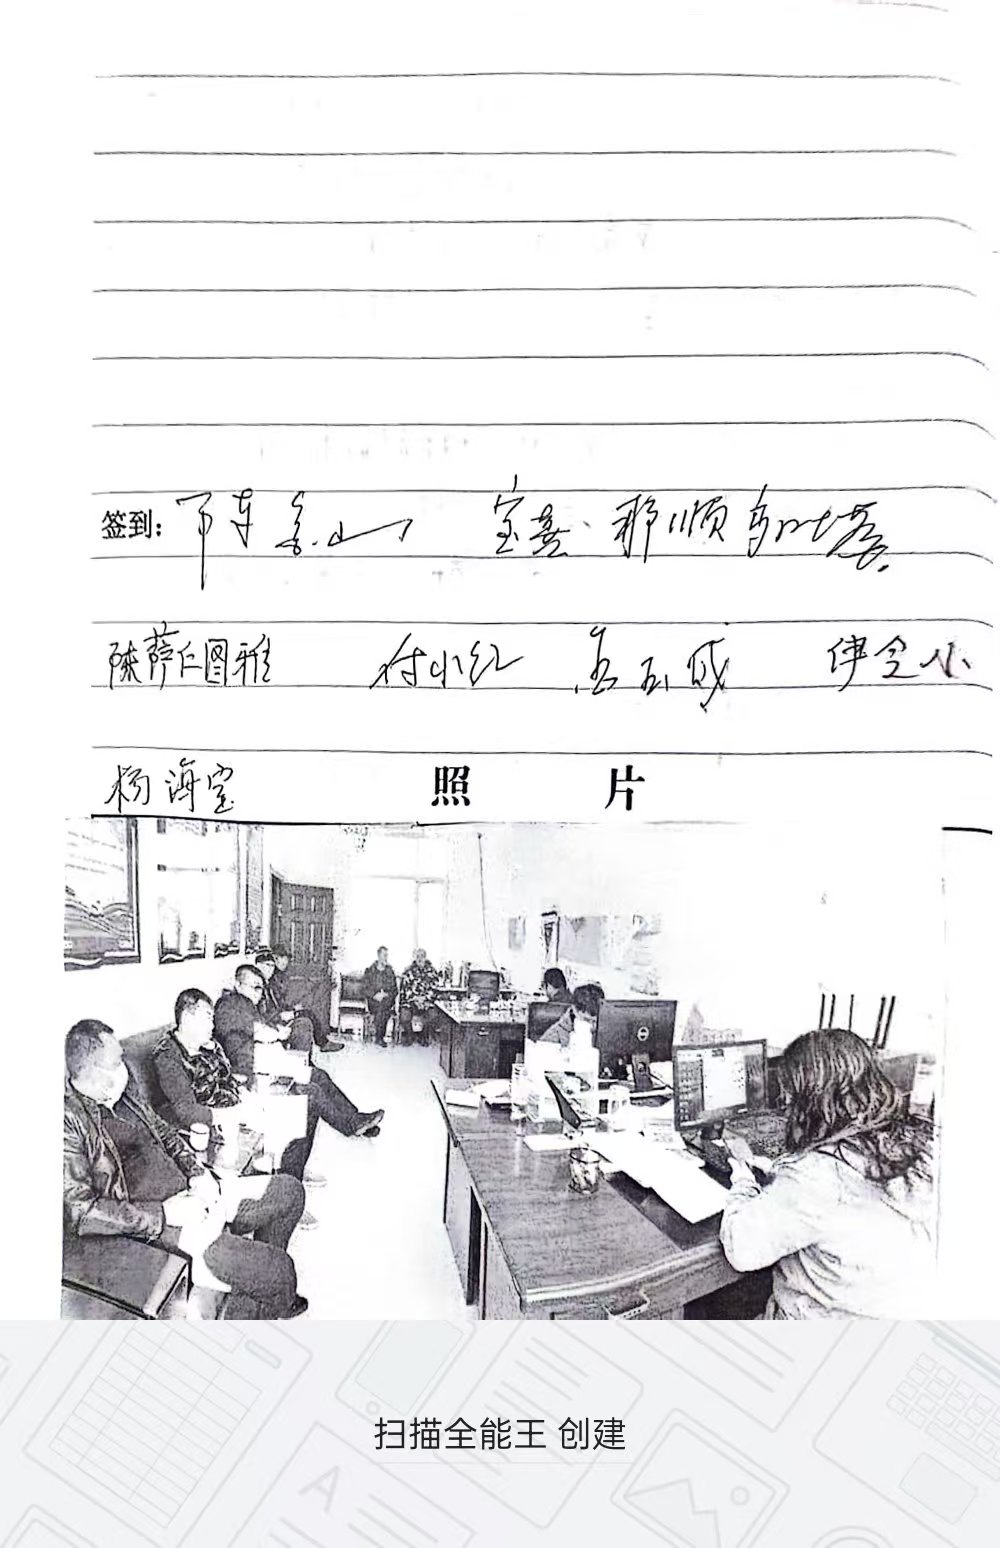 签到: 陈金山 宝喜 那顺乌 塔
陈萨仁图雅 付小红 成 伊全小
杨海宝 照 片
扫描全能王 创建